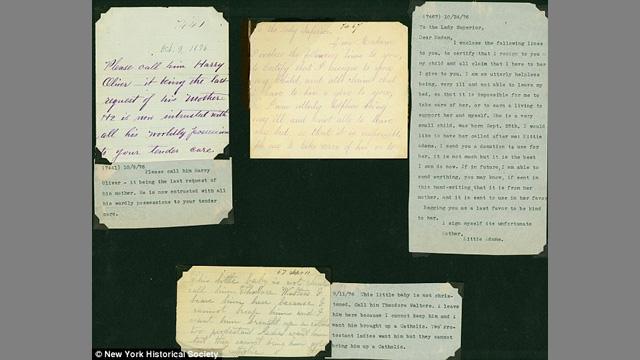 7441
Oct. 9, 1876
Please call him Harry
Oliver — it being the last
request of his Mother
He is now entrusted with
all his worldly possessions
to your tender care.
(7441) 10/9/76
Please call him Harry
Oliver - it being the last request of
his mother. He is now entrusted with all
his wordly possessions to your tender
care.
7467
To the Lady Superior
Dear Madam
I enclose the following lines to you,
to certify that I resign to you
my child and all claim that
I have to him I give to you,
I am utterly helpless being
very ill and not able to leave
my bed that it is impossible
for me to take care of her or to
(7467) 10/24/76
To the Lady Superior,
Dear Madam,
I enclose the following lines
to you, to certify that I resign to you
my child and all claim that I have to her
I give to you. I am as utterly helpless
being, very ill and not able to leave my
bed, so that it is impossible for me to
take care of her, or to earn a living to
support her and myself. She is a very
small child, was born Sept. 25th, I would
like to have her called after me: Kittie
Adams. I send you a donation to use for
her, it is not much but it is the best
I can do now. If in future, I am able to
send anything, you may know, if sent in
this hand-writing that it is from her
mother, and it is sent to use in her favor
Begging you as a last favor to be kind
to her.
I sign myself its unfortunate
mother,
Kittie Adams.
This little baby is not
call him Theodore Walters I
leave him here because I
cannot keep him and I
want him brought up a
two protestant ladies want him
but they cannot bring him up
9/11/76 This little baby is not chris-
tened. Call him Theodore Walters. I leave
him here because I cannot keep him and I
want him brought up a Catholic. Two Pro-
testant ladies want him but they cannot
bring him up a Catholic.
© New York Historical Society